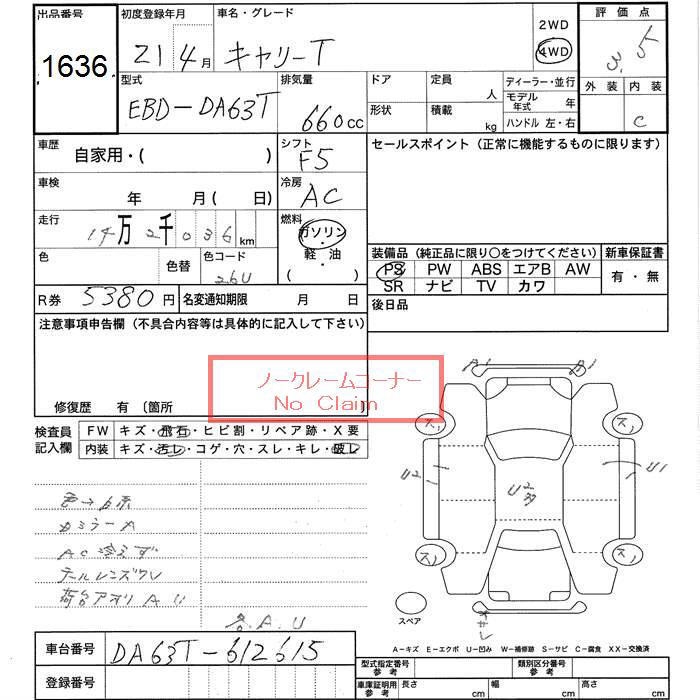 出品番号 初度登録年月 車名・グレード 2WD 評価点
1636 21年4月 キャリーT 4WD 3.5
型式 排気量 ドア 定員 人 ディーラー・並行 外装 内装
EBD-DA63T 660cc 形状 積載 kg モデル年式 年 C
ハンドル 左・右
車歴 自家用・( ) シフト F5 セールスポイント（正常に機能するものに限ります）
車検 年 月（ 日） 冷房 AC
走行 14万2千036km 燃料 ガソリン・軽油 ( )
装備品（純正品に限り○をつけてください） 新車保証書
色 色替 色コード 26U PS PW ABS エアB AW 有・無
SR ナビ TV カワ
R券 5380円 名変通知期限 月 日 後日品
注意事項申告欄（不具合内容等は具体的に記入して下さい）
ノークレームコーナー
No Claim
修復歴 有 〔箇所
検査員記入欄 FW キズ・飛石・ヒビ割・リペア跡・X要
内装 キズ・汚レ・コゲ・穴・スレ・キレ・破レ
A1 B1
ス1 ス1
U2 U1
ス1 ス1
色→白系
カミラーA
AC冷えず
テールレンズワレ
荷台アオリAU
各A.U
スペア
A－キズ E－エクボ U－凹み W－補修跡 S－サビ C－腐食 XX－交換済
車台番号 DA63T-612615
登録番号
型式指定番号 参考 類別区分番号 参考
車庫証明用 参考 長さ cm 幅 cm 高さ cm